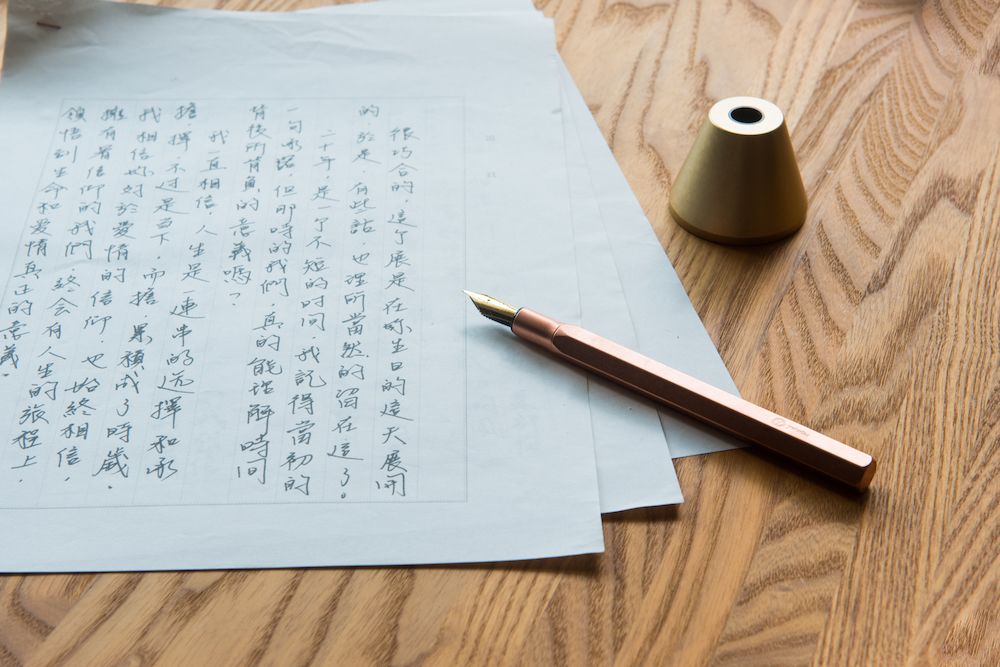 很巧合的,這个展是在妳生日的這天展開
的。於是,有些話,也理所當然的留在這了。
二十年,是一个不短的时间,我記得當初的
一句承諾,但那時的我們,真的能理解時間
背後所背負的意義嗎?
我直相信,人生是一連串的选擇和承
擔,擇,不过是当下,而擔,累積成了時歲.
我相信妳对於愛情的信仰,也始終相信,
擁有著信仰的我們,終会有人生的旅程上,
領悟到生命和爱情真正的意義.